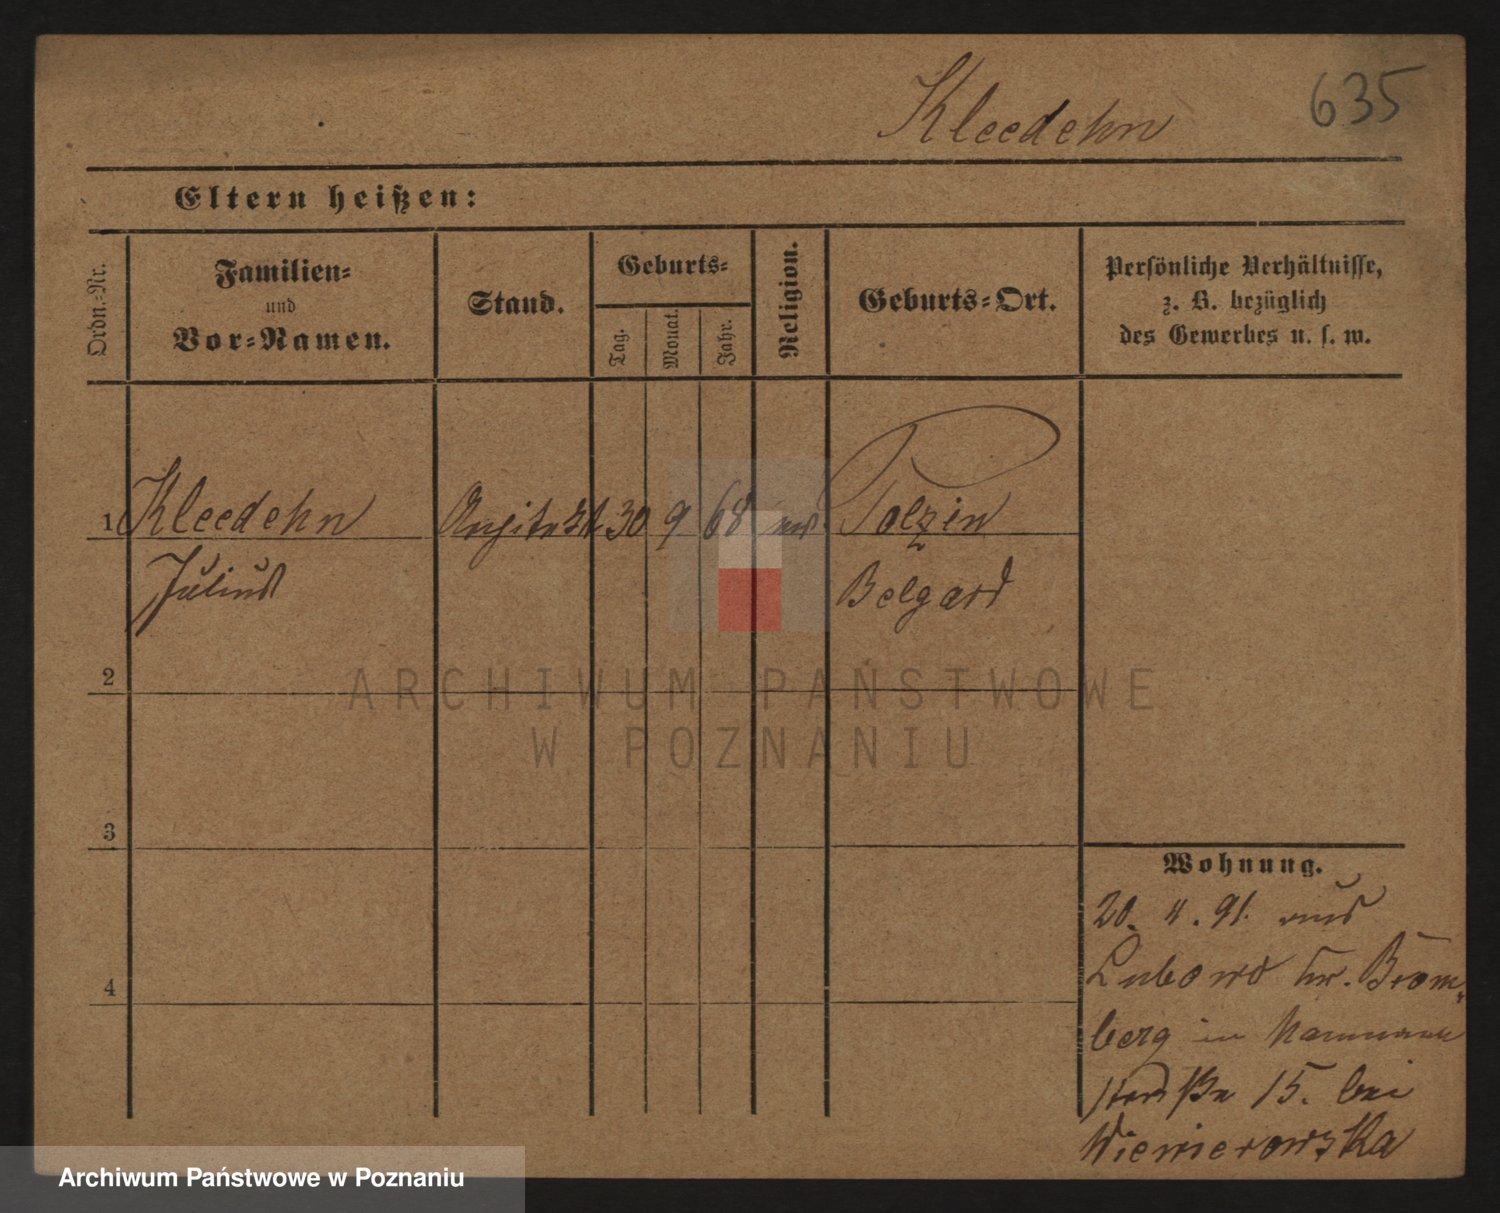 Kleedehn
635
Eltern heißen:
Ordn.-Nr.
Familien-
und
Vor-Namen.
Stand.
Geburts-
Tag.
Monat.
Jahr.
Religion.
Geburts-Ort.
Persönliche Verhältnisse,
z. B. bezüglich
des Gewerbes u. s. w.
1 Kleedehn 30 9 68 Polzin
Julius Belgard
2
3
4
Wohnung.
20. 4. 91. aus
Lubowo Kr. Brom-
berg in
straße 15. bei
ARCHIWUM PAŃSTWOWE
W POZNANIU
Archiwum Państwowe w Poznaniu